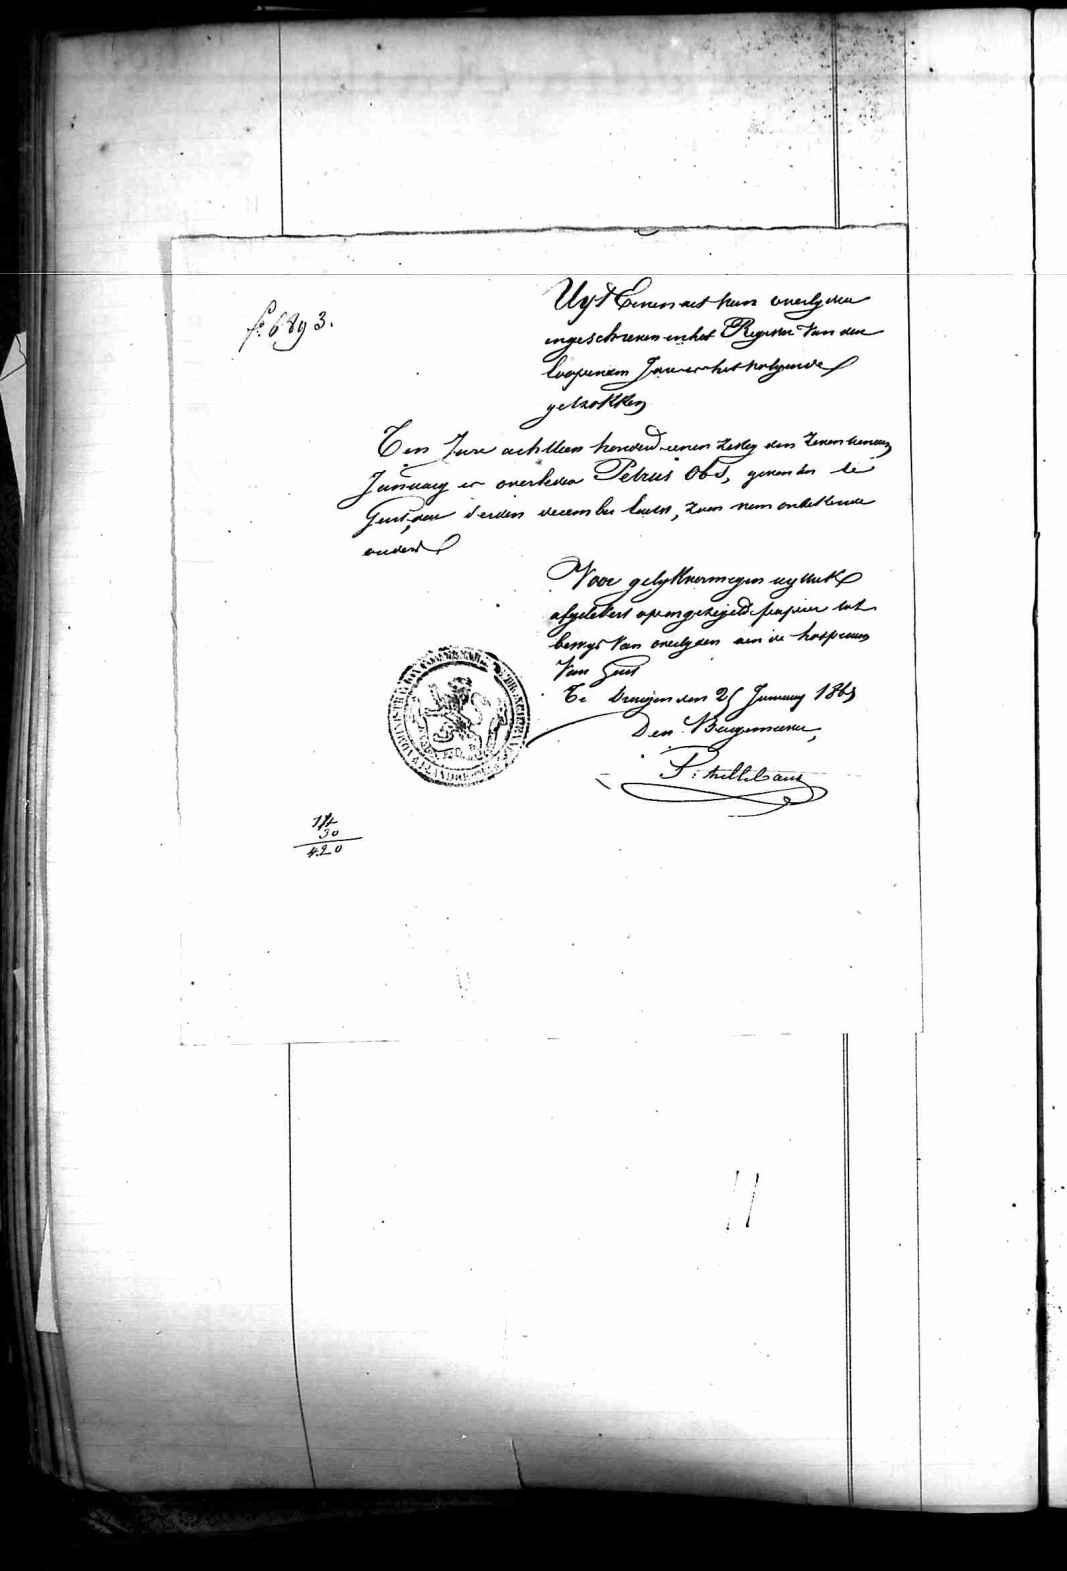 f° 6893.
Uyt Eenen act van overlyden
ingeschreven in het Register van den
loopenden Jare is het volgende
getrokken
Ten Jare achttien honderd eenen zestig den
January is overleden Petrus Obs, geboren te
Gent, den derden december, zoon van onbekende
ouders
Voor gelykvormigen uyttrek
afgelevert op ongezegeld papier tot
bewys van overlyden aen de hospicien
Van Gent
Te den 25 January 186
Den Burgemeester,
P:
14
30
420